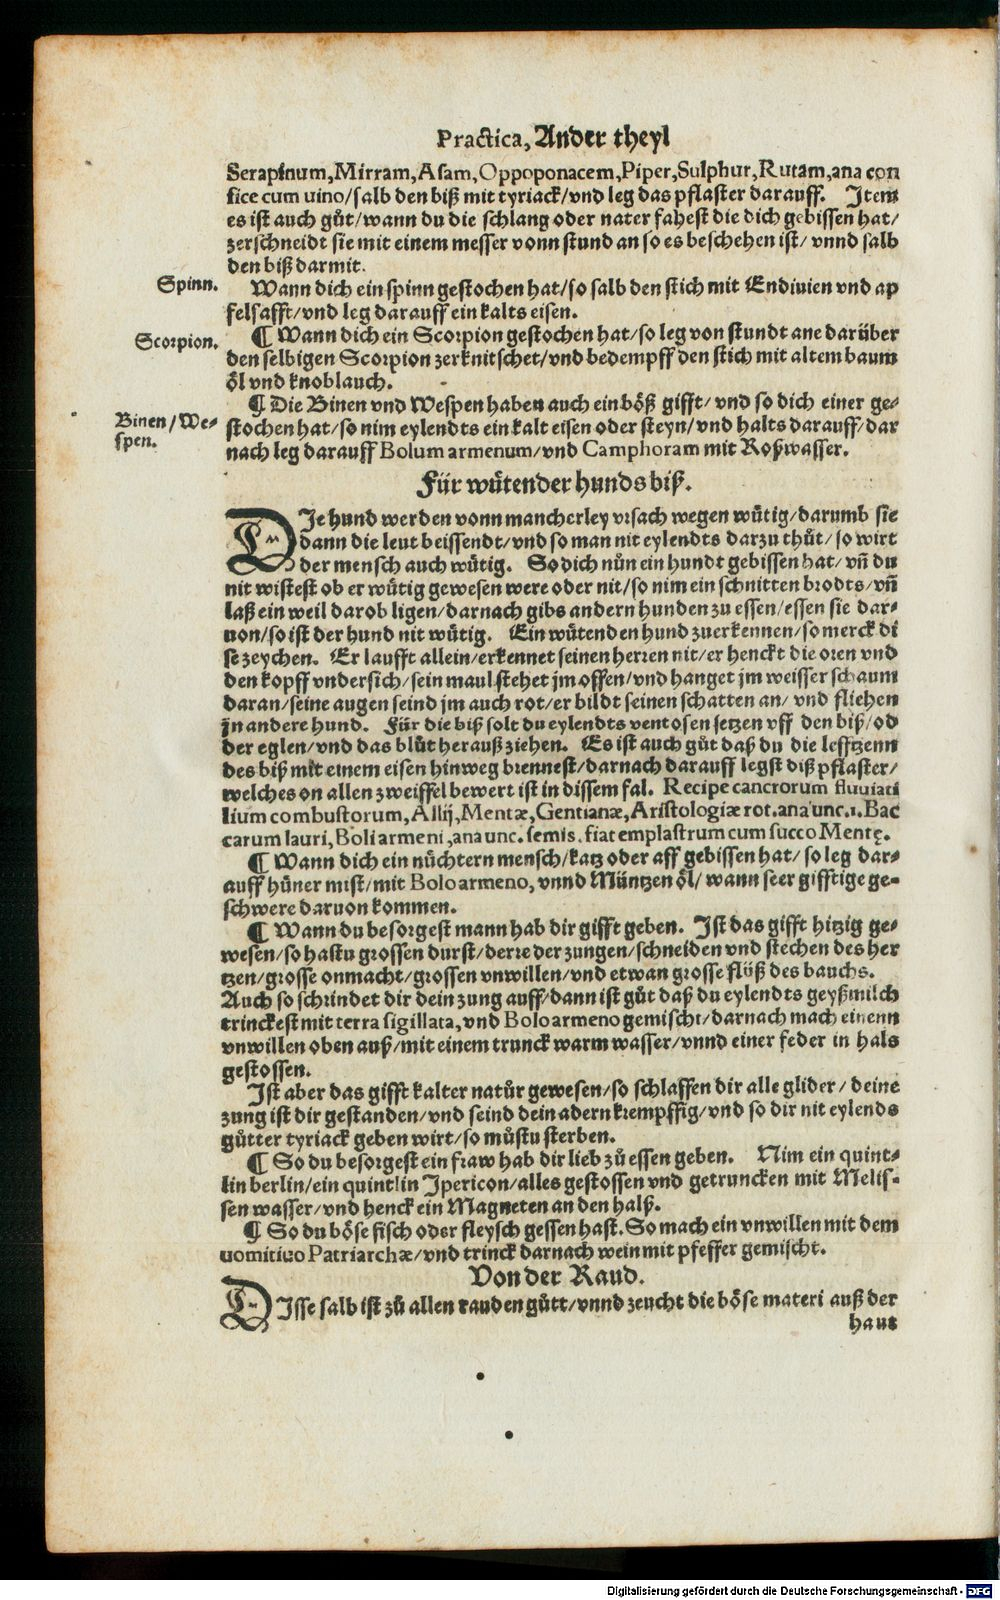 Practica, Ander theyl
Serapinum, Mirram, Asam, Oppoponacem, Piper, Sulphur, Rutam, ana con
fice cum uino/ salb den biß mit tyriack/ vnd leg das pflaster darauff. Item
es ist auch gůt/ wann du die schlang oder nater fahest die dich gebissen hat/
zerschneidt sie mit einem messer vonn stund an so es beschehen ist/ vnnd salb
den biß darmit.
Spinn.
Wann dich ein spinn gestochen hat/ so salb den stich mit Endiuien vnd ap
felsafft/ vnd leg darauff ein kalts eisen.
Scorpion.
¶ Wann dich ein Scorpion gestochen hat/ so leg von stundt ane darüber
den selbigen Scorpion zerknitschet/ vnd bedempff den stich mit altem baum
öl vnd knoblauch.
Binen/ We-
spen.
¶ Die Binen vnd Wespen haben auch ein böß gifft/ vnd so dich einer ge-
stochen hat/ so nim eylendts ein kalt eisen oder steyn/ vnd halts darauff/ dar
nach leg darauff Bolum armenum/ vnd Camphoram mit Roßwasser.
Für wütender hunds biß.
DIe hund werden vonn mancherley vrsach wegen wütig/ darumb sie
dann die leut beissendt/ vnd so man nit eylendts darzu thůt/ so wirt
der mensch auch wütig. So dich nůn ein hundt gebissen hat/ vñ du
nit wistest ob er wütig gewesen were oder nit/ so nim ein schnitten brodts/ vñ
laß ein weil darob ligen/ darnach gibs andern hunden zu essen/ essen sie dar-
uon/ so ist der hund nit wütig. Ein wütenden hund zuerkennen/ so merck di
se zeychen. Er laufft allein/ erkennet seinen herren nit/ er henckt die oren vnd
den kopff vndersich/ sein maul stehet jm offen/ vnd hanget jm weisser schaum
daran/ seine augen seind jm auch rot/ er bildt seinen schatten an/ vnd fliehen
jn andere hund. Für die biß solt du eylendts ventosen setzen vff den biß/ od
der eglen/ vnd das blůt herauß ziehen. Es ist auch gůt daß du die lefftzenn
des biß mit einem eisen hinweg brennest/ darnach darauff legst diß pflaster/
welches on allen zweiffel bewert ist in dissem fal. Recipe cancrorum fluuiati
lium combustorum, Allij, Mentæ, Gentianæ, Aristologiæ rot. ana unc. ı. Bac
carum lauri, Boli armeni, ana unc. semis. fiat emplastrum cum succo Mentę.
¶ Wann dich ein nüchtern mensch/ katz oder aff gebissen hat/ so leg dar-
auff hüner mist/ mit Bolo armeno, vnnd Müntzen öl/ wann seer gifftige ge-
schwere daruon kommen.
¶ Wann du besorgest mann hab dir gifft geben. Ist das gifft hitzig ge-
wesen/ so hastu grossen durst/ derre der zungen/ schneiden vnd stechen des her
tzen/ grosse onmacht/ grossen vnwillen/ vnd etwan grosse flüß des bauchs.
Auch so schrindet dir dein zung auff/ dann ist gůt daß du eylendts geyßmilch
trinckest mit terra sigillata, vnd Bolo armeno gemischt/ darnach mach einenn
vnwillen oben auß/ mit einem trunck warm wasser/ vnnd einer feder in hals
gestossen.
Ist aber das gifft kalter natůr gewesen/ so schlaffen dir alle glider/ deine
zung ist dir gestanden/ vnd seind dein adern krempffig/ vnd so dir nit eylends
gůtter tyriack geben wirt/ so můstu sterben.
¶ So du besorgest ein fraw hab dir lieb zů essen geben. Nim ein quint-
lin berlin/ ein quintlin Ipericon/ alles gestossen vnd getruncken mit Melis-
sen wasser/ vnd henck ein Magneten an den halß.
¶ So du böse fisch oder fleysch gessen hast. So mach ein vnwillen mit dem
uomitiuo Patriarchæ/ vnd trinck darnach wein mit pfeffer gemischt.
Von der Raud.
DIsse salb ist zů allen rauden gůtt/ vnnd zeucht die böse materi auß der
haut
Digitalisierung gefördert durch die Deutsche Forschungsgemeinschaft - DFG